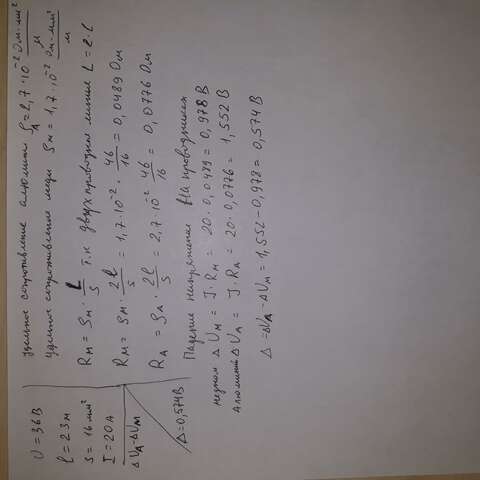 U = 36 В
l = 23 м
S = 16 мм²
I = 20 А
ΔU_А - ΔU_М
Δ = 0,574 В
Удельное сопротивление алюминия ρ_А = 2,7 · 10⁻² Ом·мм²/м
Удельное сопротивление меди ρ_М = 1,7 · 10⁻² Ом·мм²/м
R_М = ρ_М · L/S т.к двухпроводная линия L = 2·l
R_М = ρ_М · 2l/S = 1,7 · 10⁻² · 46/16 = 0,0489 Ом
R_А = ρ_А · 2l/S = 2,7 · 10⁻² 46/16 = 0,0776 Ом
Падение напряжения на проводниках
медном ΔU_М = J · R_М = 20 · 0,0489 = 0,978 В
Алюмин ΔU_А = J · R_А = 20 · 0,0776 = 1,552 В
Δ = ΔU_А - ΔU_М = 1,552 - 0,978 = 0,574 В